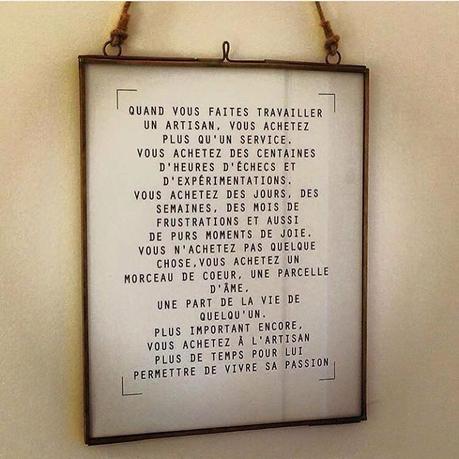 QUAND VOUS FAITES TRAVAILLER
UN ARTISAN, VOUS ACHETEZ
PLUS QU'UN SERVICE.
VOUS ACHETEZ DES CENTAINES
D'HEURES D'ÉCHECS ET
D'EXPÉRIMENTATIONS.
VOUS ACHETEZ DES JOURS, DES
SEMAINES, DES MOIS DE
FRUSTRATIONS ET AUSSI
DE PURS MOMENTS DE JOIE.
VOUS N'ACHETEZ PAS QUELQUE
CHOSE,VOUS ACHETEZ UN
MORCEAU DE COEUR, UNE PARCELLE
D'ÂME,
UNE PART DE LA VIE DE
QUELQU'UN.
PLUS IMPORTANT ENCORE,
VOUS ACHETEZ À L'ARTISAN
PLUS DE TEMPS POUR LUI
PERMETTRE DE VIVRE SA PASSION